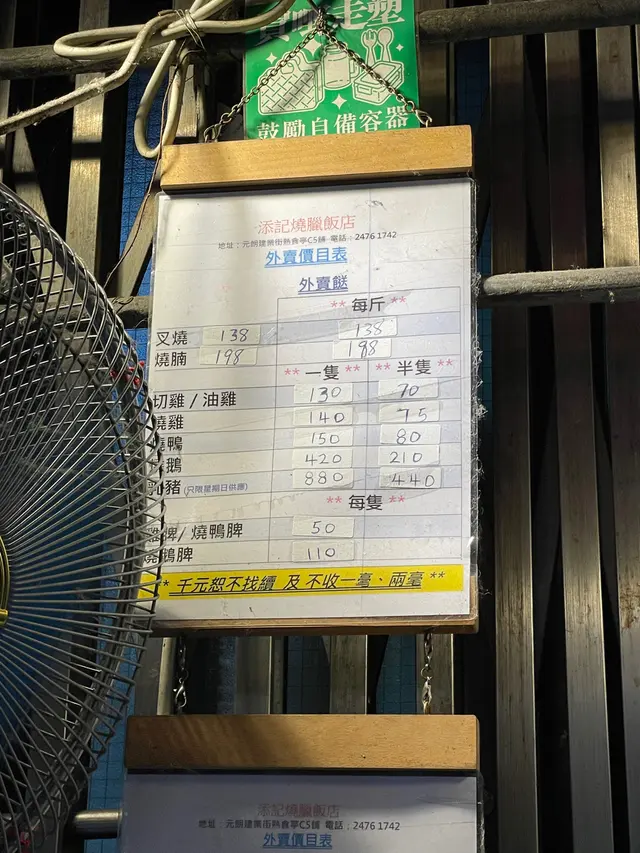 走塑
鼓勵自備容器
添記燒臘飯店
地址：元朗建業街熱食亭C5舖 電話：2476 1742
外賣價目表
外賣餸
** 每斤 **
叉燒 138 138
燒腩 198 198
** 一隻 ** ** 半隻 **
切雞 / 油雞 130 70
燒雞 140 75
鴨 150 80
鵝 420 210
豬 (只限星期日供應) 880 440
** 每隻 **
脾/ 燒鴨脾 50
燒鵝脾 110
** 千元恕不找續 及 不收一毫、兩毫 **
添記燒臘飯店
地址：元朗建業街熱食亭C5舖 電話：2476 1742
外賣價目表